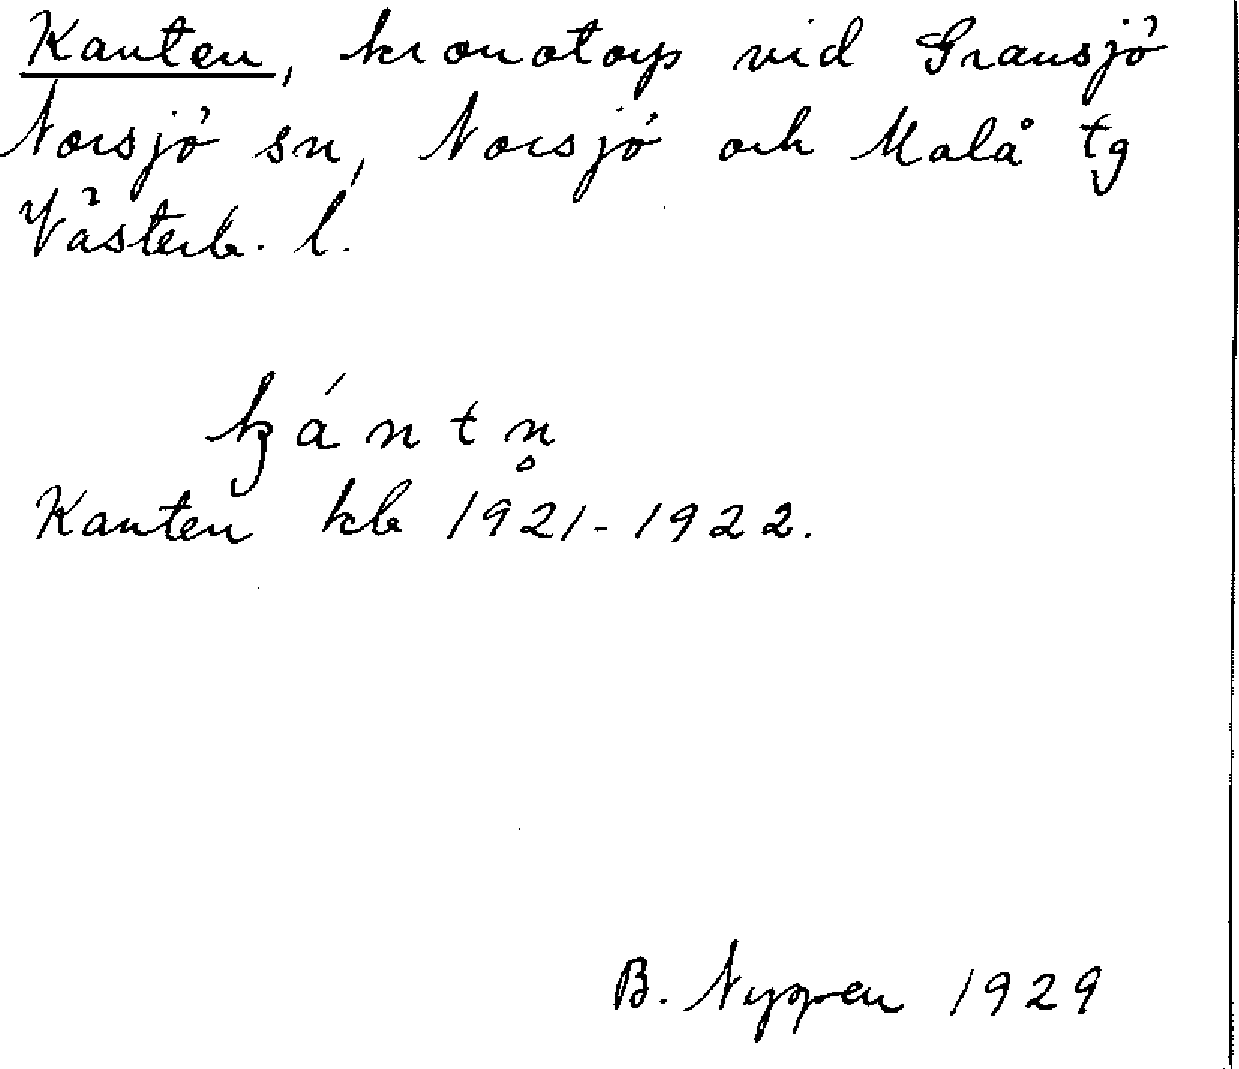 Kanten, kronotorp vid Gransjö
Norsjö sn, Norsjö och Malå tg
Västerb. l.
ḱántn̥
Kanten kb 1921-1922.
B. Nyppen 1929